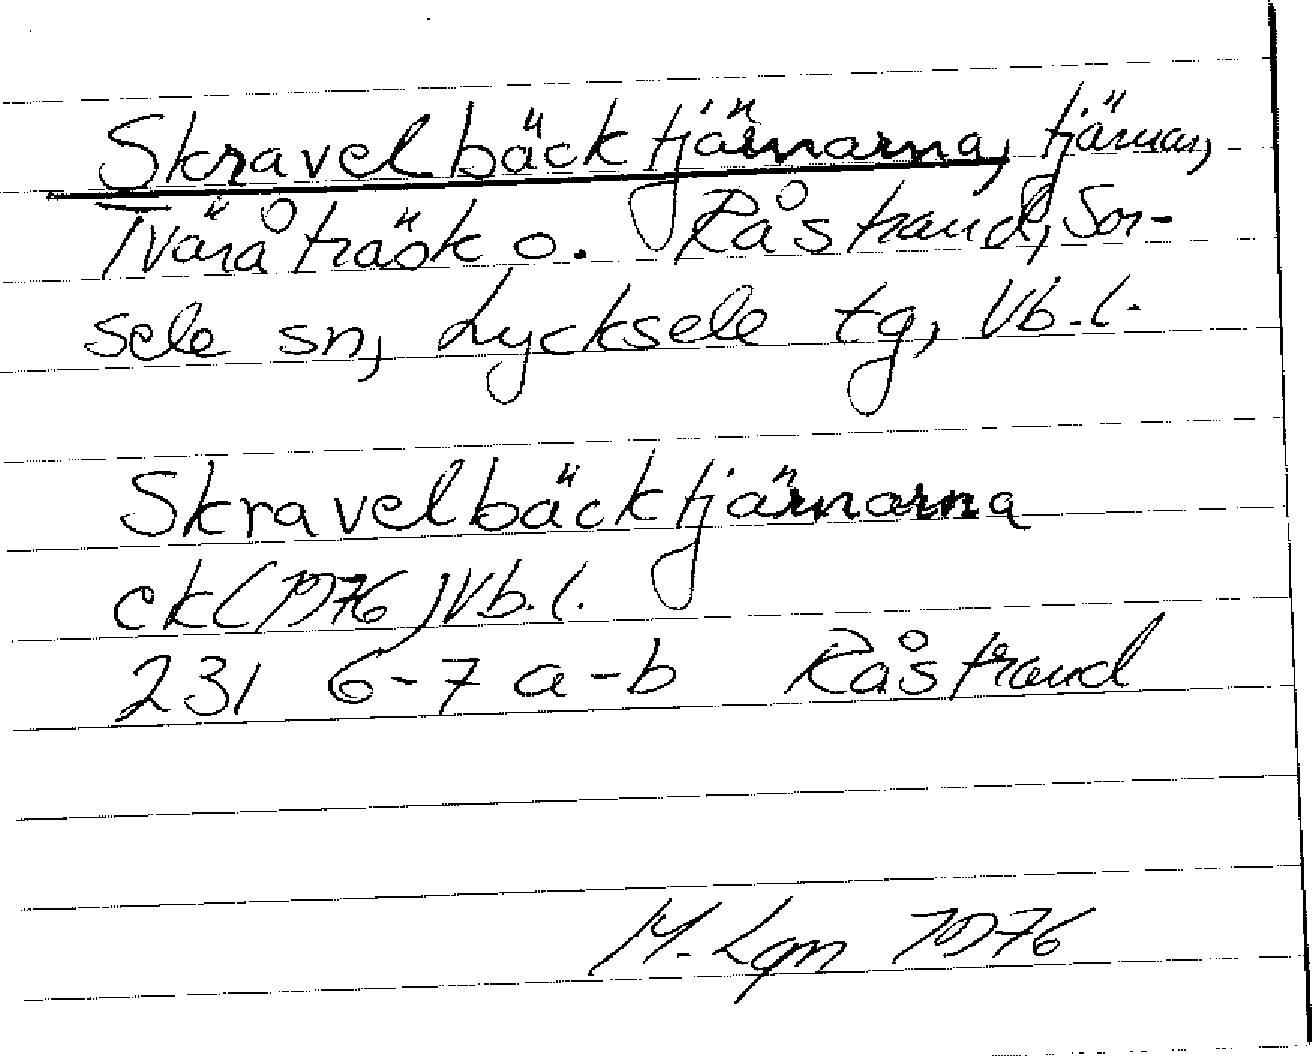 Skravelbäcktjärnarna, tjärnar,
Tväråträsk o. Råstrand, Sor-
sele sn, Lycksele tg, Vb.l.
Skravelbäcktjärnarna
ek (1976) Vb.l.
231 6-7 a-b Råstrand
M. Lgn 1976